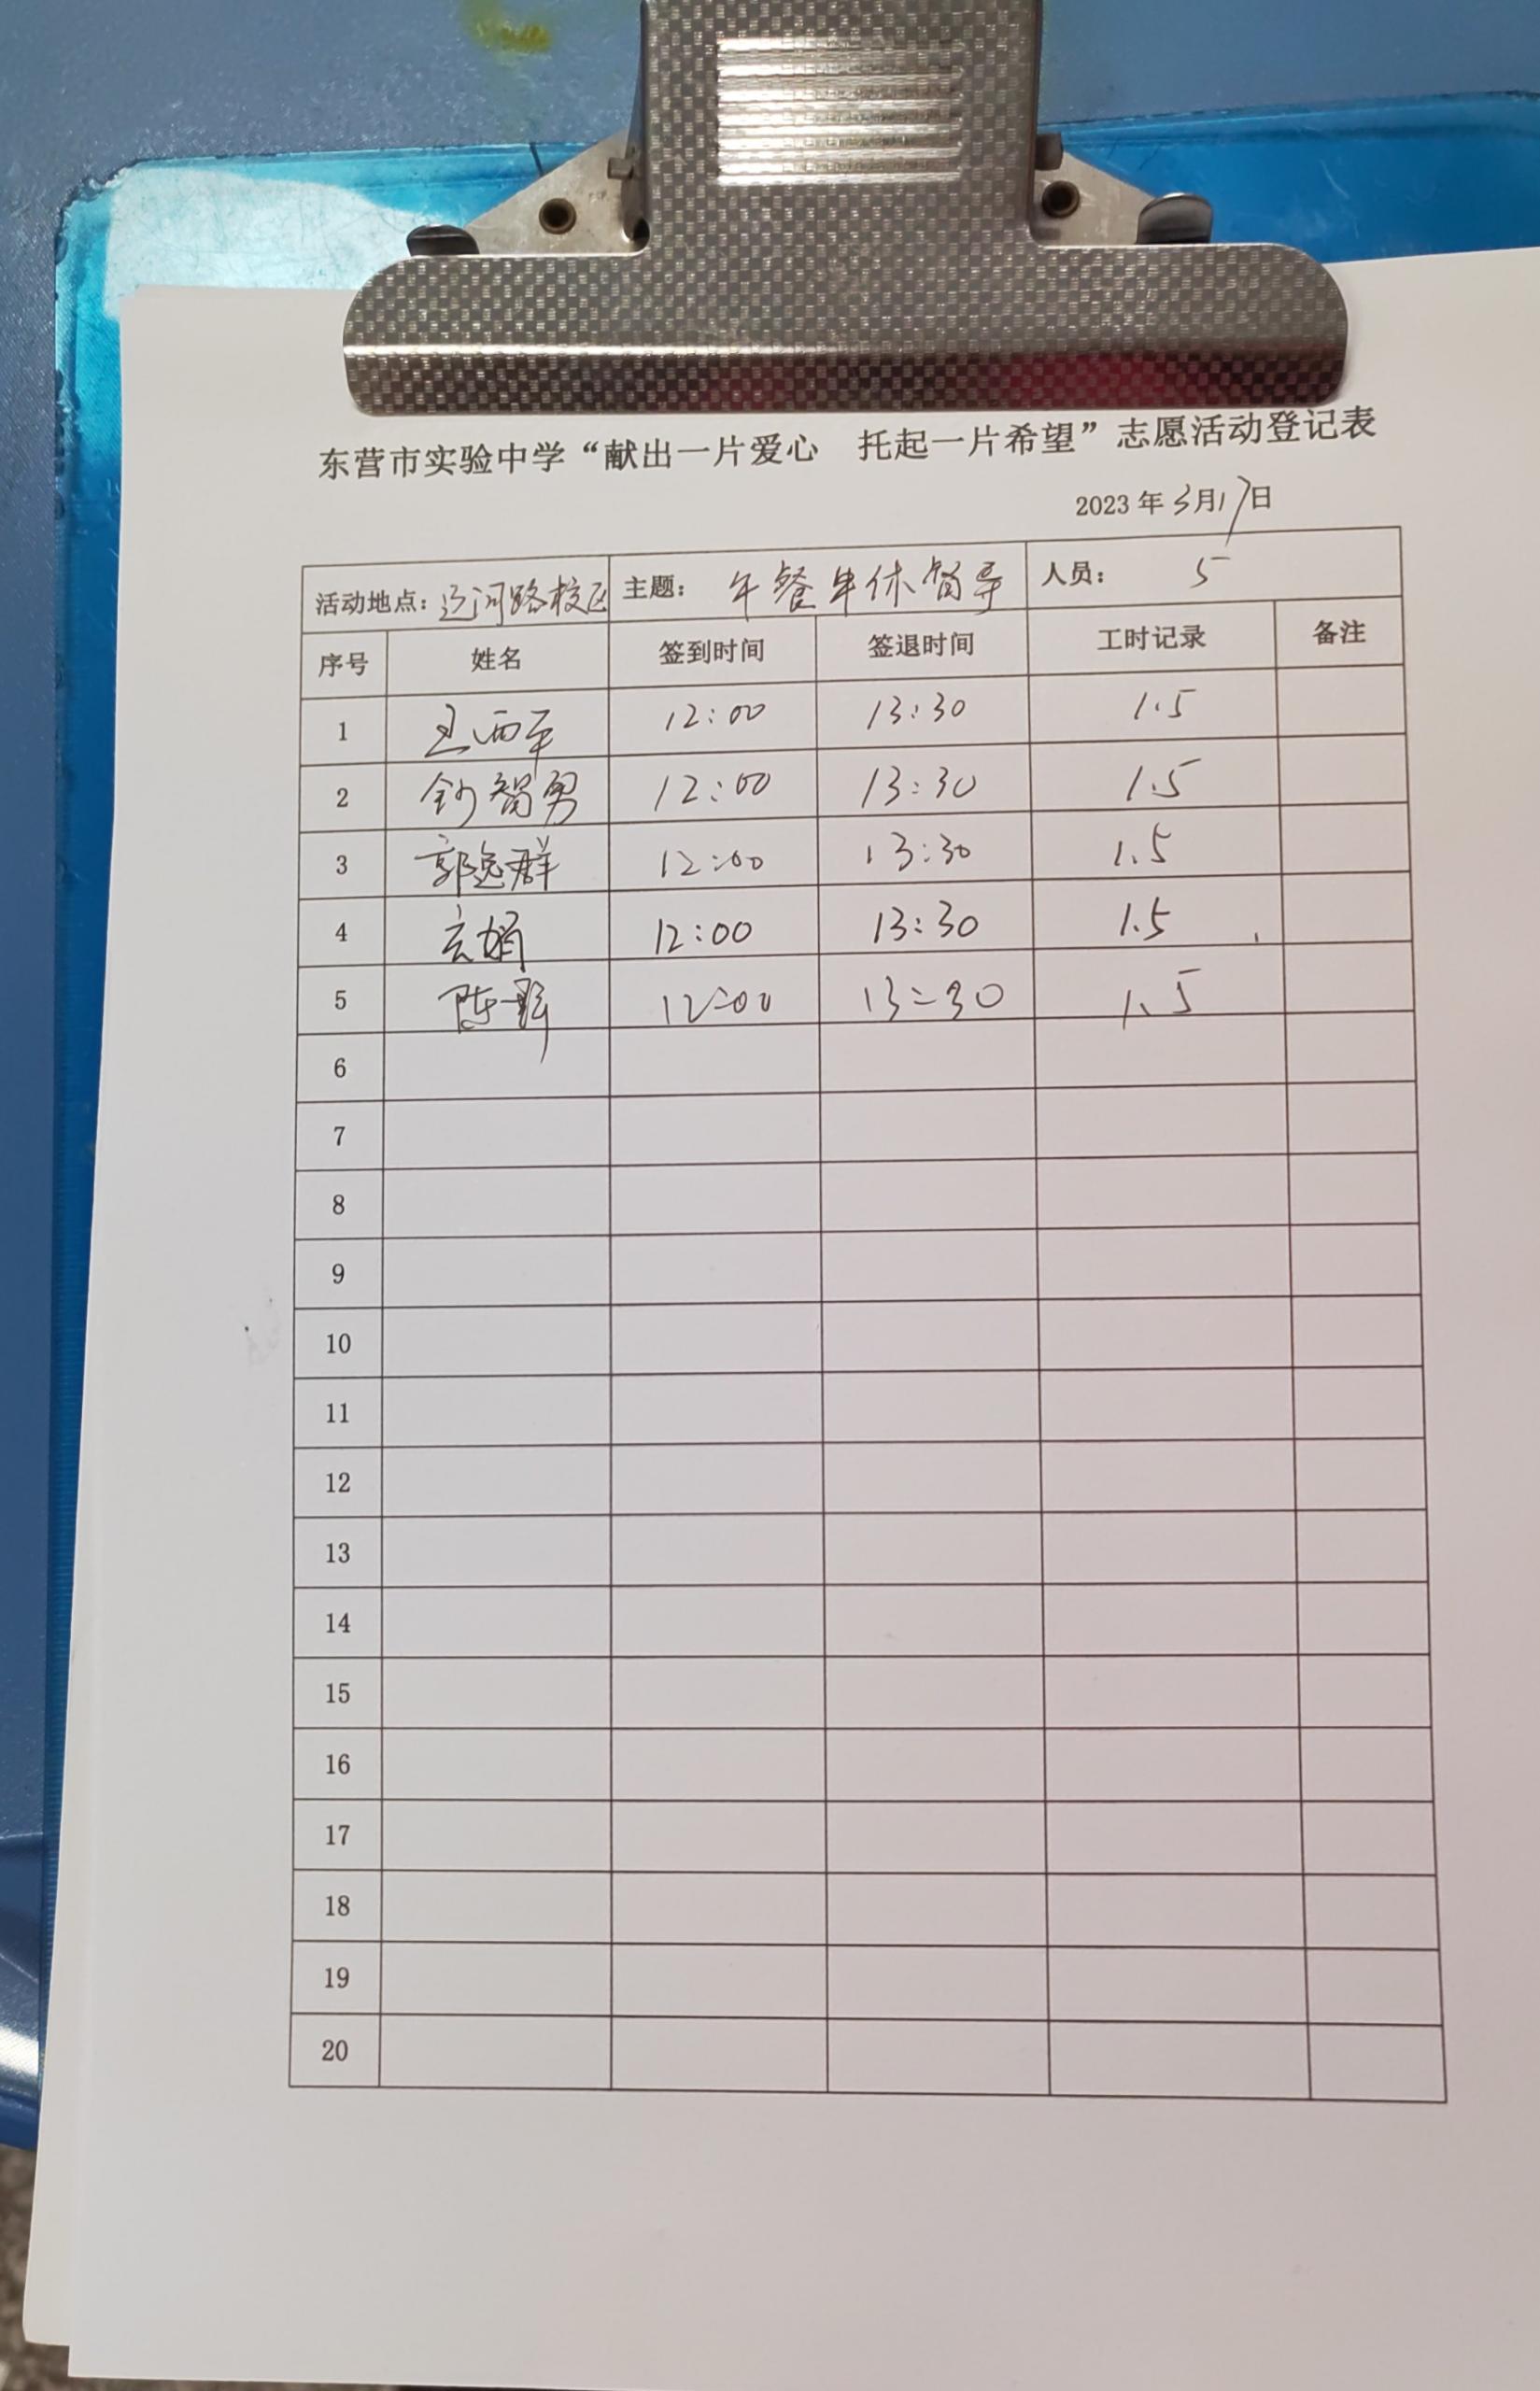 东营市实验中学“献出一片爱心 托起一片希望”志愿活动登记表
2023年3月17日
活动地点：辽河路校区 主题：午餐午休督导 人员：5
序号 姓名 签到时间 签退时间 工时记录 备注
1 王西军 12:00 13:30 1.5
2 智勇 12:00 13:30 1.5
3 郭逸群 12:00 13:30 1.5
4 玄娟 12:00 13:30 1.5
5 陈 12:00 13:30 1.5
6
7
8
9
10
11
12
13
14
15
16
17
18
19
20